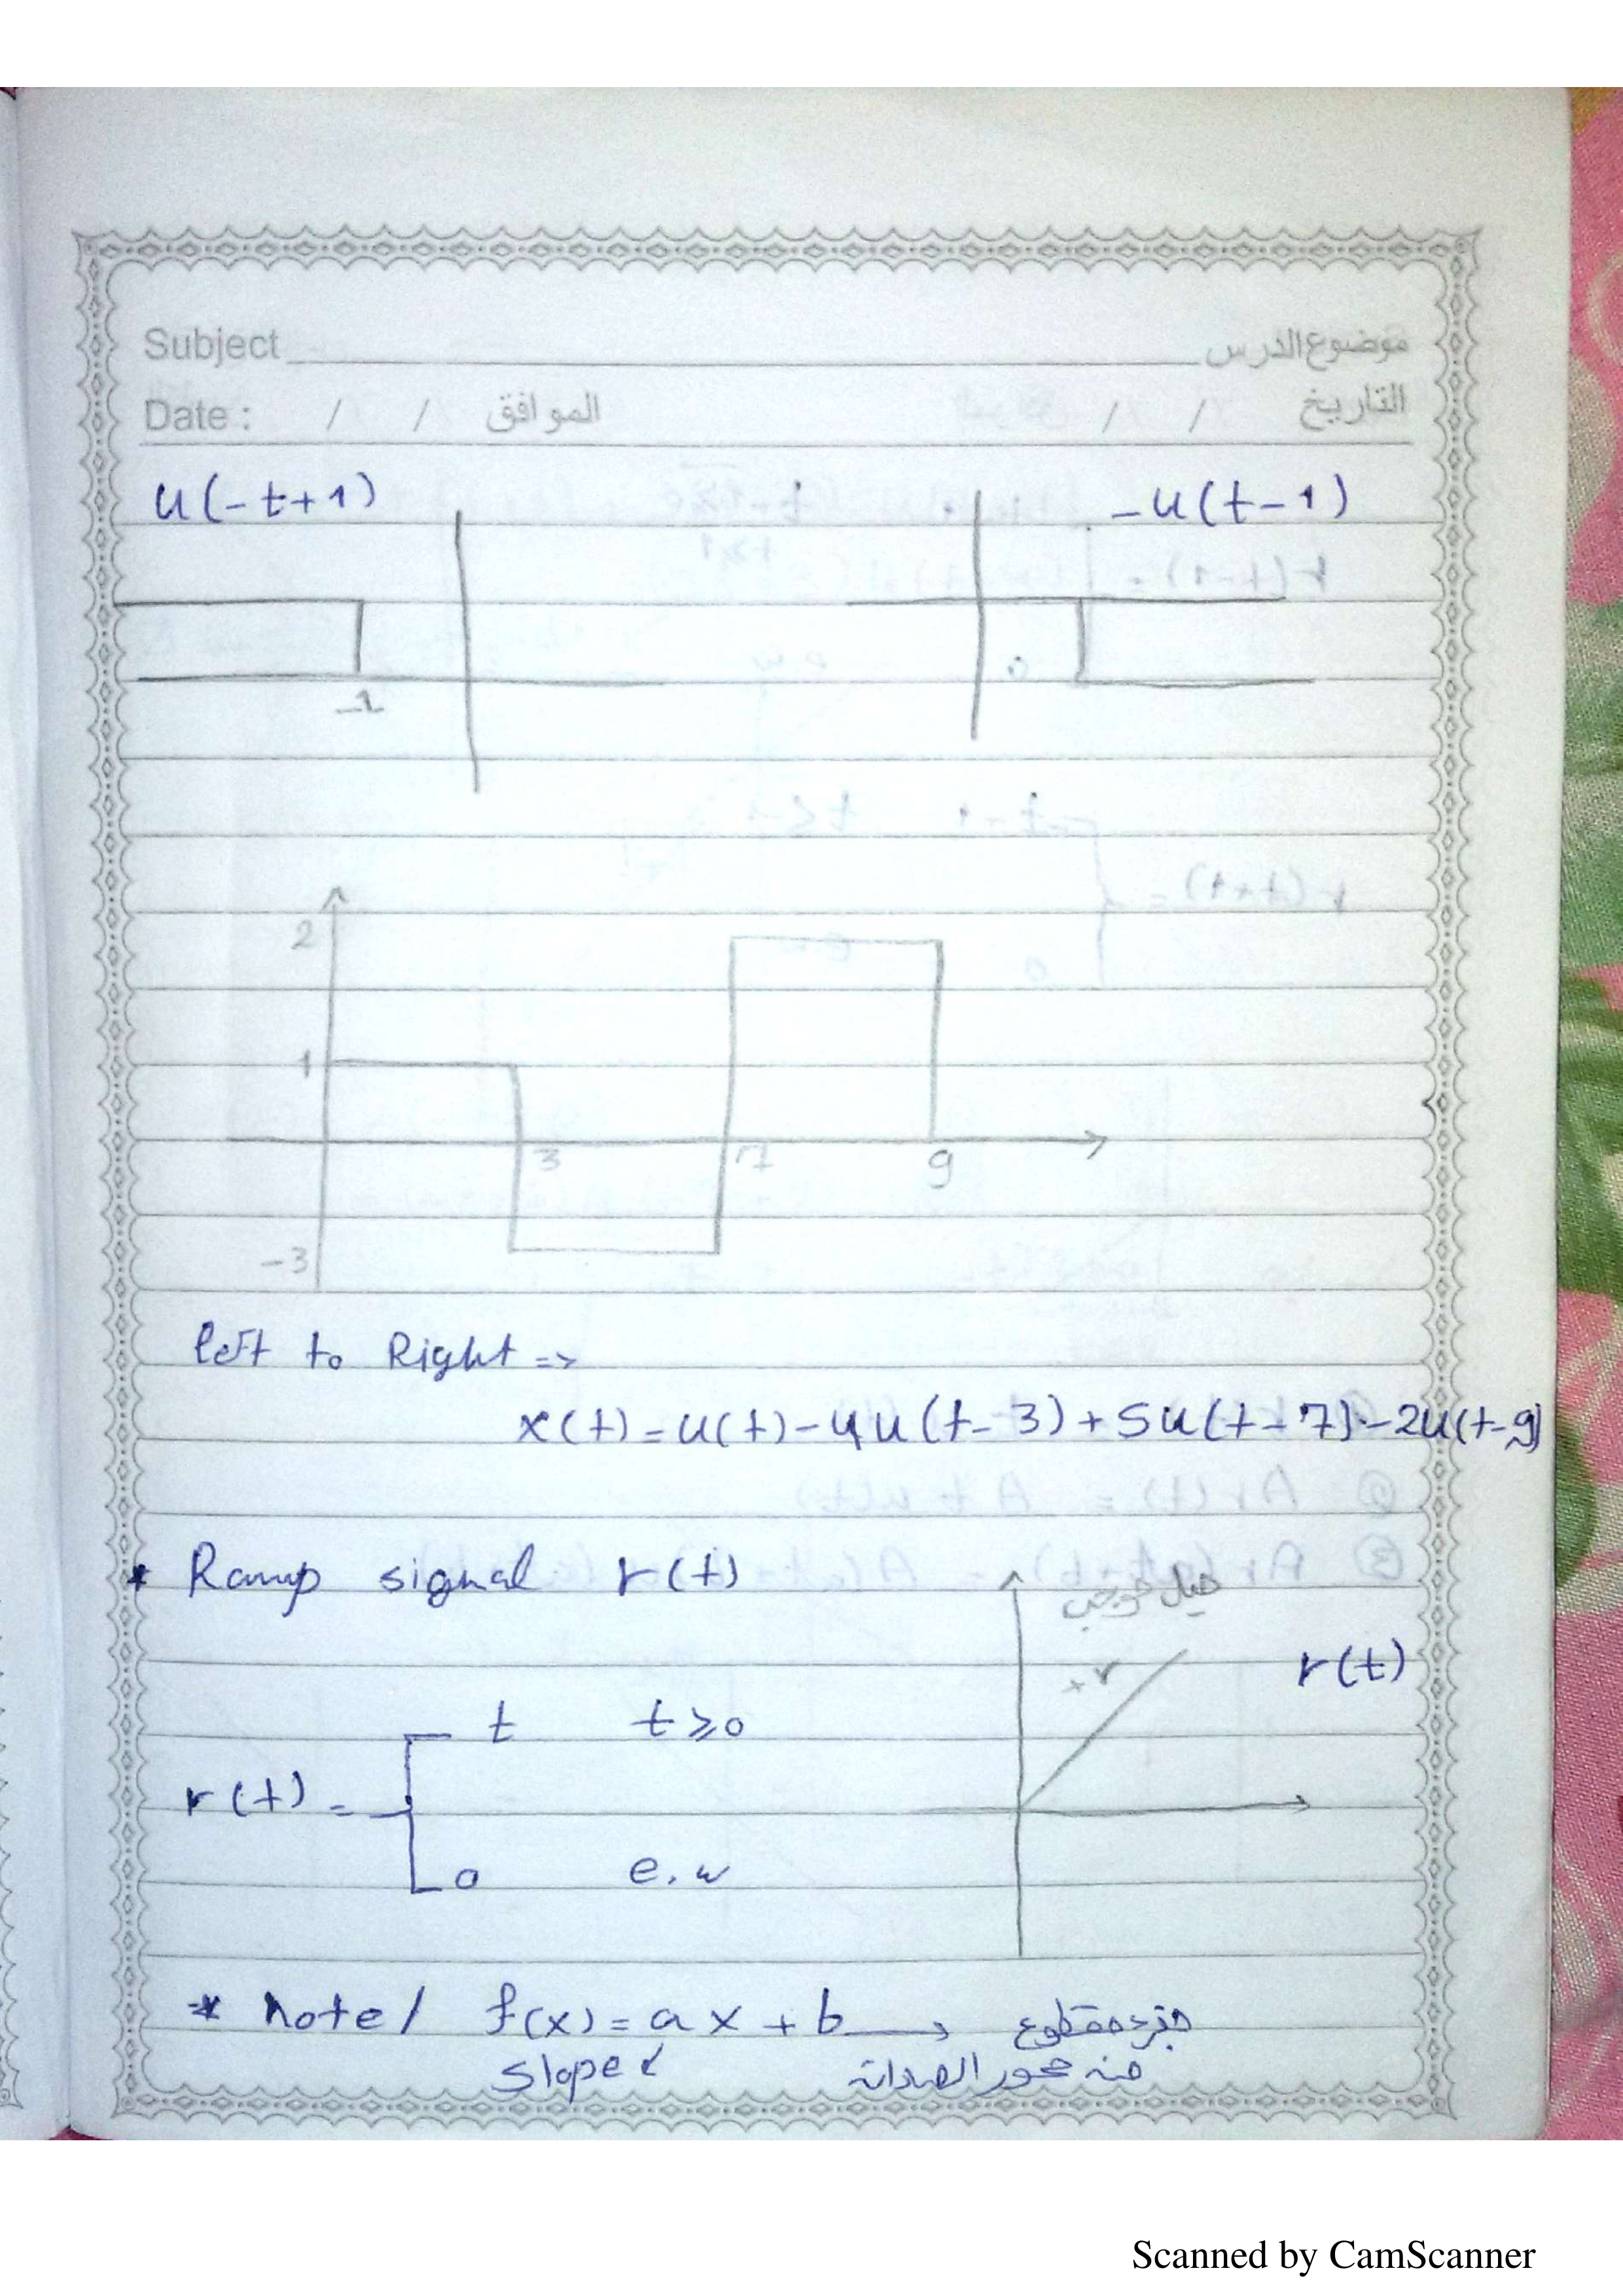 Subject موضوع الدرس
Date : / / الموافق / / التاريخ
u(-t+1) -u(t-1)
-1
2
1
3 7 9
-3
left to Right =>
x(t) = u(t) - 4u(t-3) + 5u(t-7) - 2u(t-9)
* Ramp signal r(t)
ميل موجب
+r r(t)
t t ⩾ 0
r(t) =
0 e.w
* note / f(x) = ax + b → جزء مقطوع
slope من محور الصادات
Scanned by CamScanner